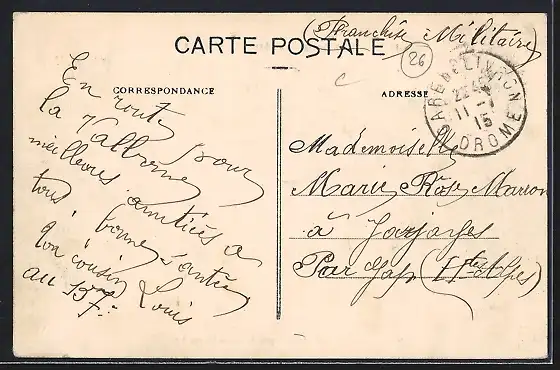 (Franchise Militaire)
CARTE POSTALE
26
CORRESPONDANCE
ADRESSE
GARE DE LIVRON
11 - 1
15
DROME
En route pour
la Valbonne
meilleures amitiés à
tous bonne santée
Ton cousin Louis
au 157
Mademoiselle
Marie Rose
à Jarjayes
Par Gap (Htes Alpes)